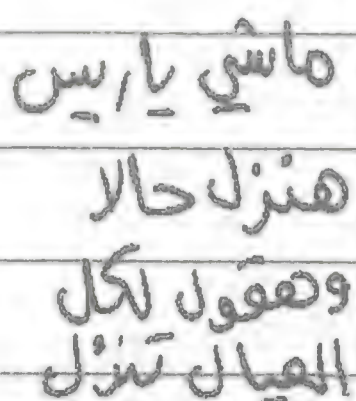 ماشي يا ريس
هنزل حالا
وهقول لكل
العيال تنزل